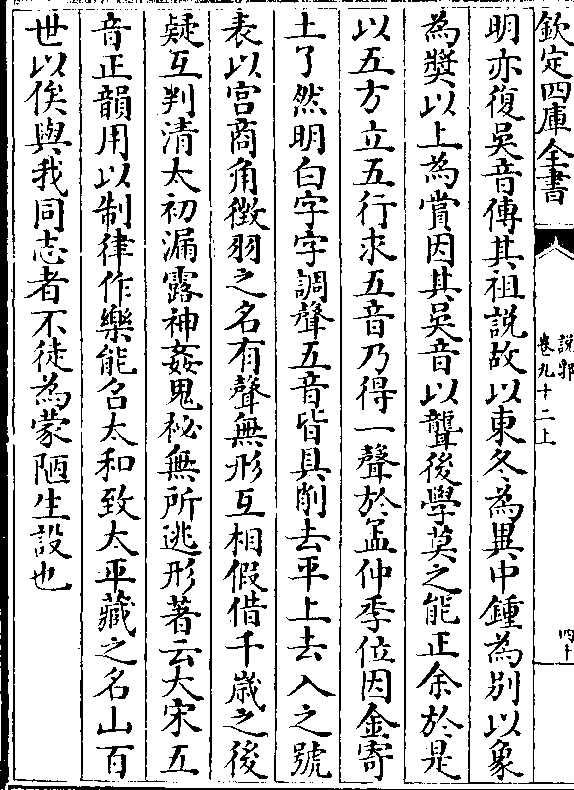 欽定四庫全書
說郛
卷九十二上
四十
明亦復吳音傳其祖説故以東冬為異中鍾為别以象
為奬以上為賞因其吳音以聾後學莫之能正余於是
以五方立五行求五音乃得一聲於孟仲季位因金寄
土了然明白字字調聲五音皆具削去平上去入之號
表以宫商角徵羽之名有聲無形互相假借千嵗之後
疑互判清太初漏露神姦鬼秘無所逃形著云大宋五
音正韻用以制律作樂能召太和致太平藏之名山百
世以俟與我同志者不徒為蒙陋生設也